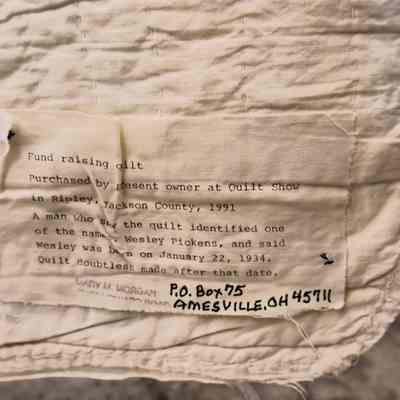 Fund raising qilt
Purchased by present owner at Quilt Show
in Ripley, Jackson County, 1991
A man who saw the quilt identified one
of the names, Wesley Pickens, and said
Wesley was born on January 22, 1934.
Quilt doubtless made after that date.
GARY M. MORGAN
P.O. Box 75
AMESVILLE, OH 45711